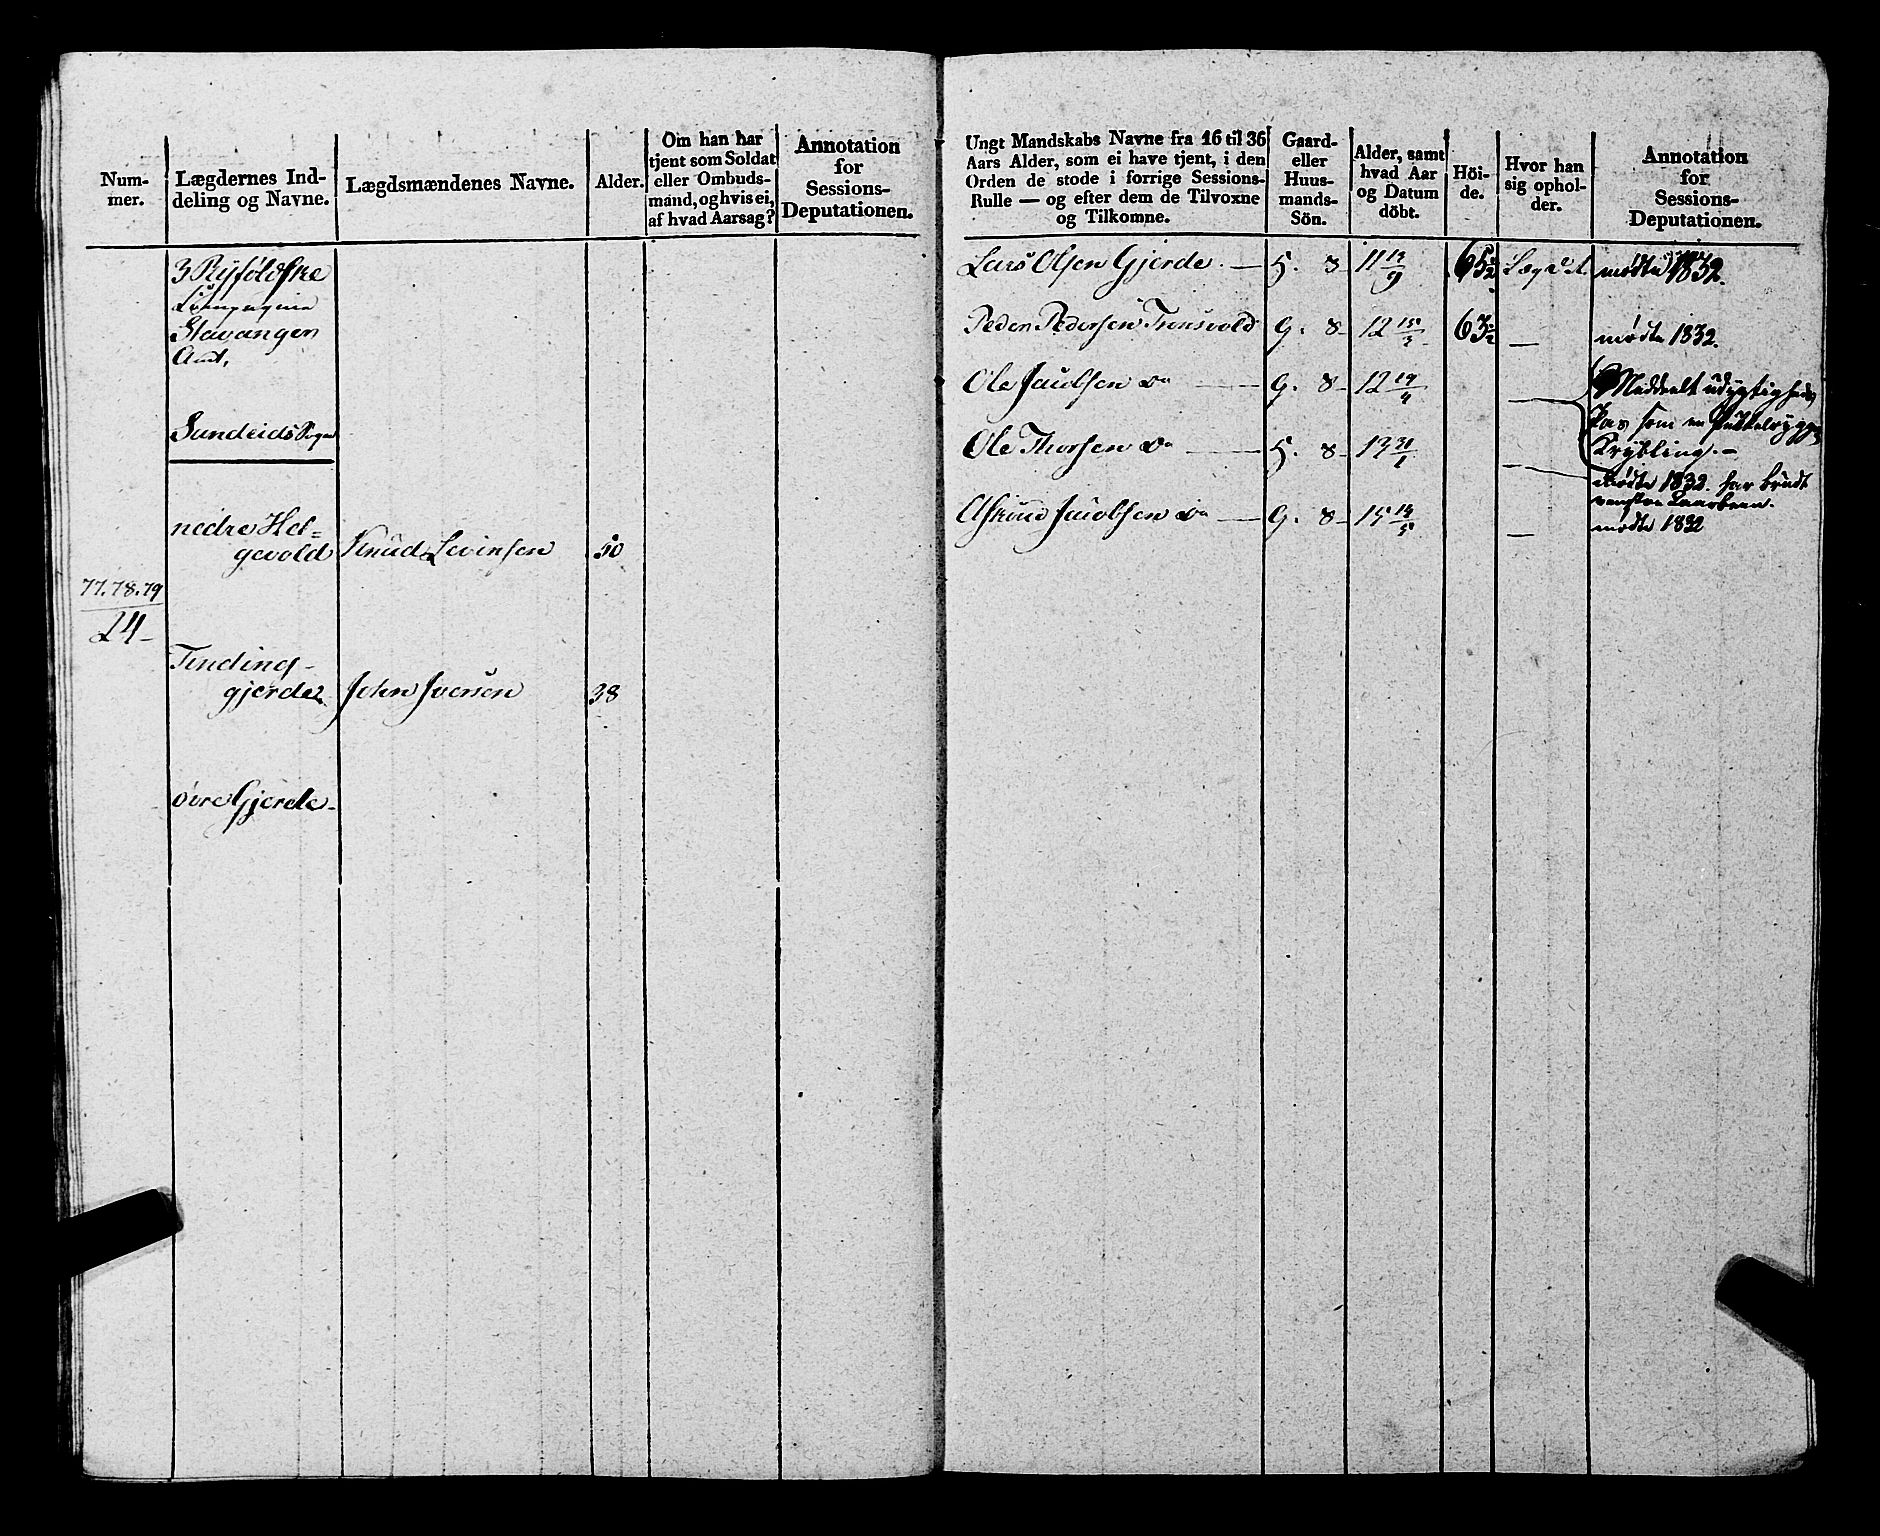 Num-
mer.
Lægdernes Ind-
deling og Navne.
Lægdsmændenes Navne.
Alder.
Om han har
tjent som Soldat
eller Ombuds-
mand, og hvis ei,
af hvad Aarsag?
Annotation
for
Sessions-
Deputationen.
3 Ryfölske
Compagnie
Stavanger
Amt,
Sandeids Sogn
nedre Hel-
gevold Knud Levinsen 50
77.78.79
24
Tinding-
gjerde John Iversen 38
övre Gjerde
Ungt Mandskabs Navne fra 16 til 36
Aars Alder, som ei have tjent, i den
Orden de stode i forrige Sessions-
Rulle — og efter dem de Tilvoxne
og Tilkomne.
Gaard-
eller
Huus-
mands-
Sön.
Alder, samt
hvad Aar
og Datum
döbt.
Höi-
de.
Hvor han
sig ophol-
der.
Annotation
for
Sessions-
Deputationen.
Lars Olsen Gjerde. — H. 8 11 65 1/2 Lægdet. mødte 1832.
Peder Pedersen G. 8 12 15/3 63 1/2 — mødte 1832.
Ole Jacobsen do — G. 8 12 19/4 — Meddeelt udygtigheds
Pas som en Pukkelrygget
Krybling. —
Ole Thorsen do — H. 8 13 31/1 — mødte 1832. har brudt
venstre Laarbeen.
Jacobsen do — G. 8 15 — mødte 1832